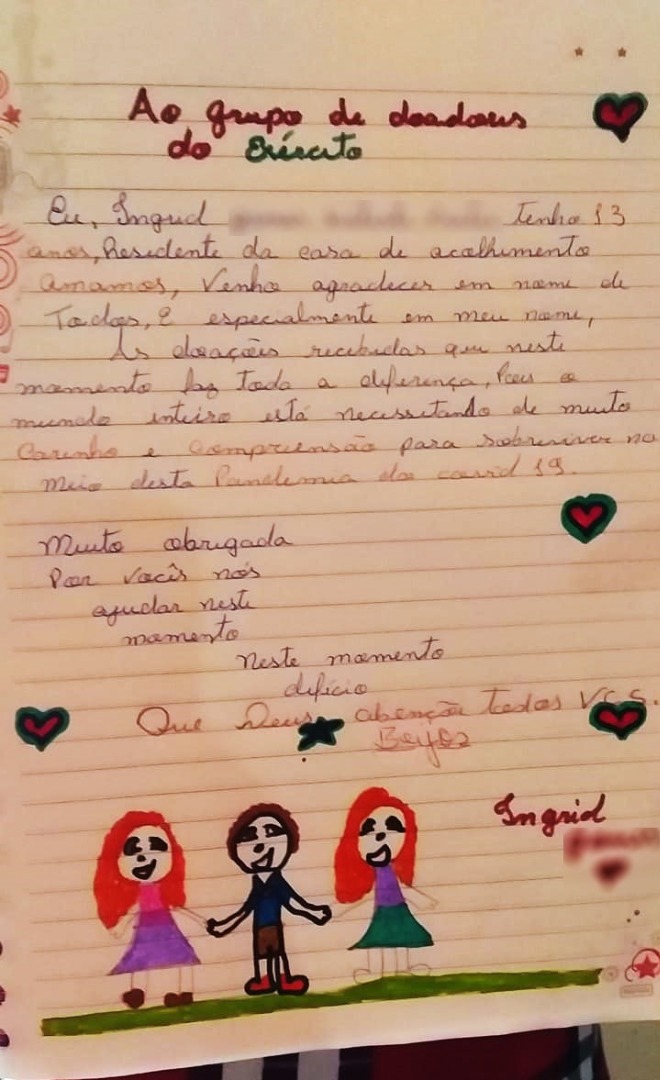 Ao grupo de doadores
do Exército
Eu, Ingrid tenho 13
anos, Residente da casa de acolhimento
amamos, Venho agradecer em nome de
Todos, E especialmente em meu nome,
As doações recebidas que neste
momento faz toda a diferença, Pois o
mundo inteiro está necessitando de muito
Carinho e Compreensão para sobreviver no
meio desta Pandemia do covid 19.
Muito obrigada
Por vocês nós
ajudar neste
momento
Neste momento
difício
Que Deus abençõe todos vcs.
Beyos
Ingrid